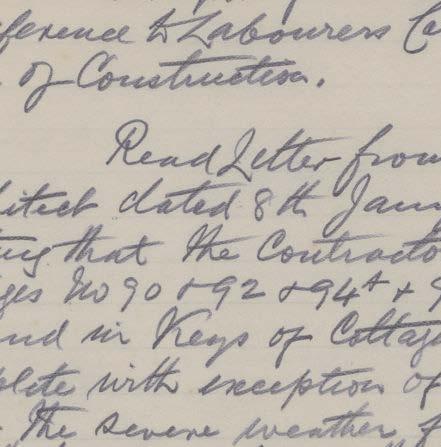 ference to Labourers Co
of Construction.
Read Letter from
itect dated 8th Jan
ing that the Contracto
ges No 90 & 92 & 94A & 9
nd in Keys of Cottage
plete with exception of
The severe weather f